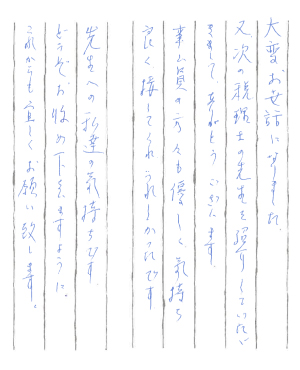 大変お世話になりました。
又、次の税理士の先生を紹介していただき
まして、ありがとうございます。
事ム員の方々も優しく、気持ち
良く接してくれうれしかったです
先生への私達の気持ちです。
どうぞお収め下さいますように。
これからも宜しくお願い致します。